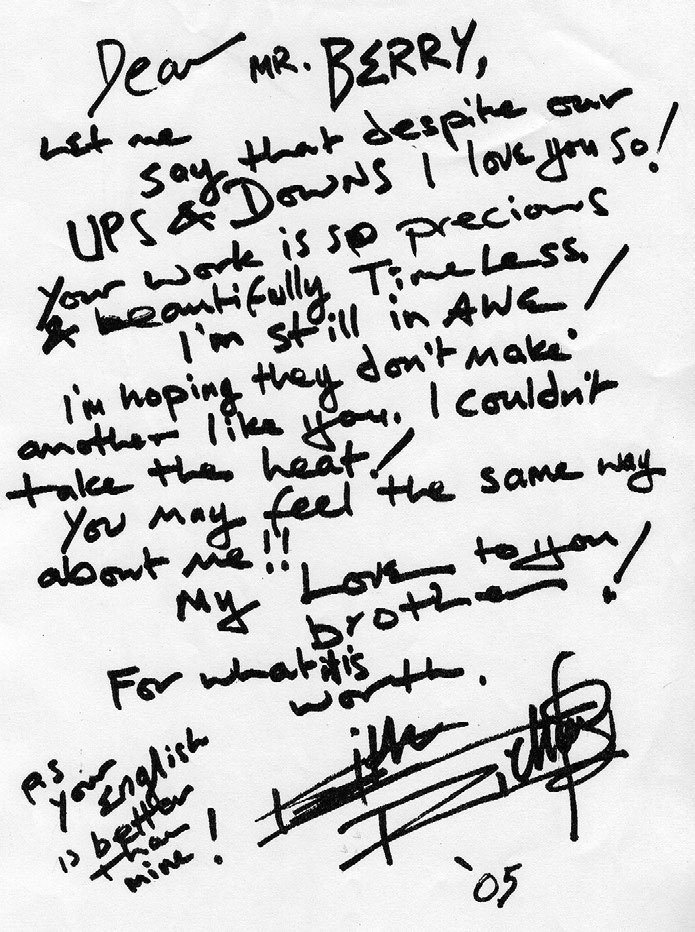 Dear MR. BERRY,
Let me
say that despite our
UPS & DOWNS I love you so!
Your work is so precious
& beautifully Timeless.
I'm still in AWE!
I'm hoping they don't make
another like you. I couldn't
take the heat!
You may feel the same way
about me!!
My Love to you
brother!
For what it is
worth.
Keith Richards
'05
PS
your
English
is better
than
mine!